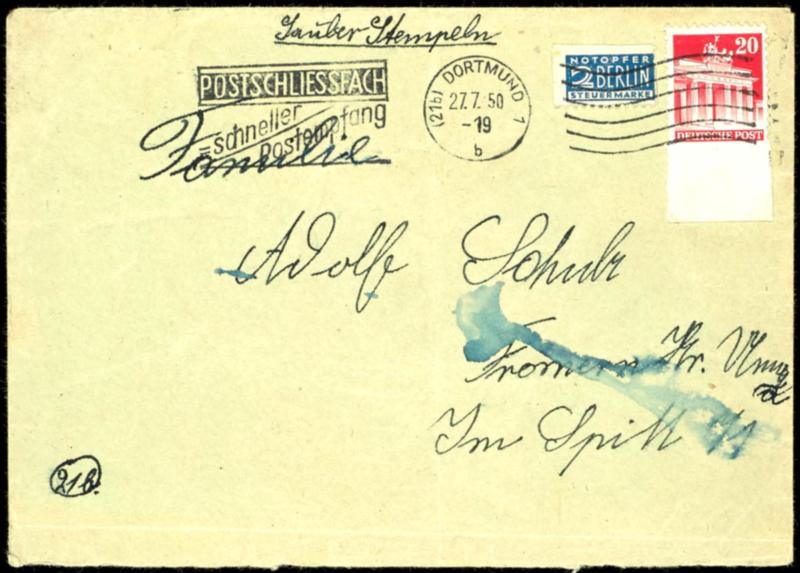 Sauber Stempeln
POSTSCHLIESSFACH
=schneller
Postempfang
(21b) DORTMUND 1
27.7.50
-19
b
NOTOPFER
2 BERLIN
STEUERMARKE
20
DEUTSCHE POST
Familie
Adolf Schulz
Frömern Kr. Unna
Im Spitt
21b.